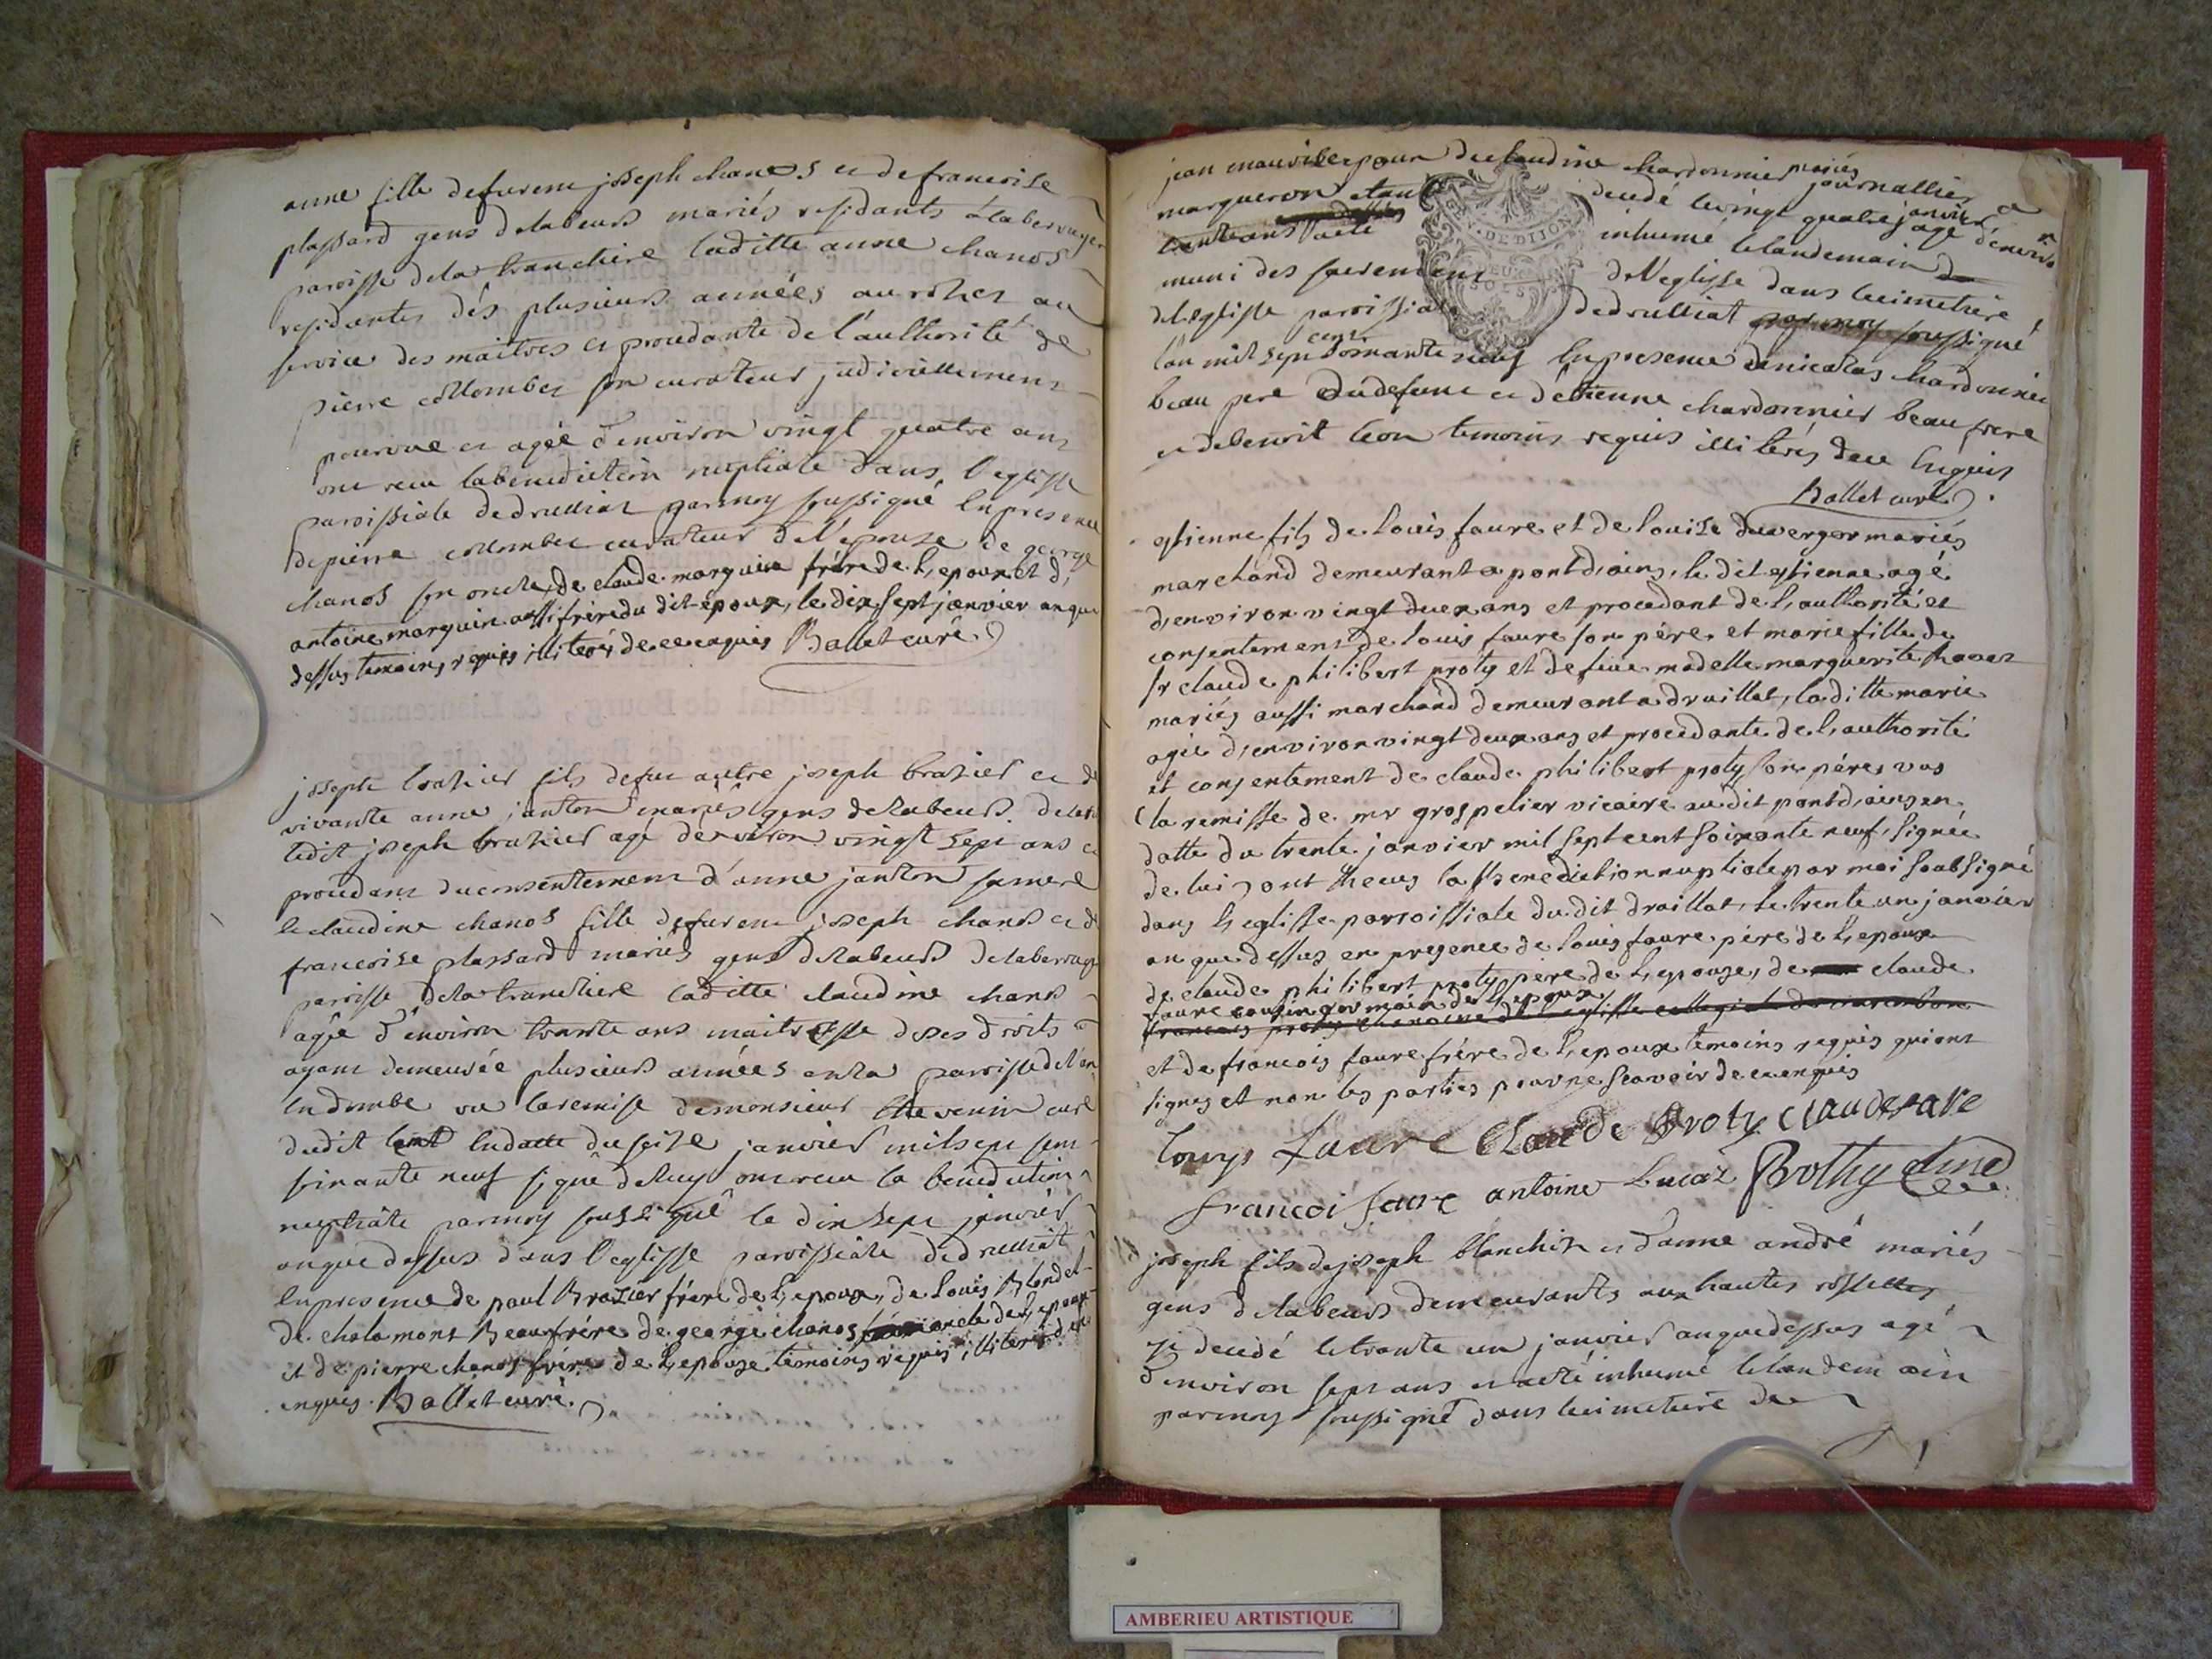 anne fille de furent joseph chanos et de francoise
plassard gens de labeurs mariés residants à la berruyer
paroisse de la tranchire laditte anne chanos
residantes dés plusieurs années au rohet au
service des maitres et procedante de l'authorité de
pierre collombet son curateur judiciellement
pourvue et agée d'environ vingt quatre ans
ont recu la benediction nuptiale dans l'eglisse
paroissiale de druillat par moy soussigné en presence
de pierre collombet curateur de l'épouse de george
chanos son oncle, de claude marguin frére de l,epoux et d,
antoine marguin aussi frére du dit époux, le dix sept janvier an que
dessus temoins requis illiterés de ce enquis Ballet curé
joseph brazier fils de fut autre joseph brazier et de
vivante anne janton mariés gens de labeurs
ledit joseph brazier agé d'environ vingt sept ans et
procedant du consentement d'anne janton sa mere
et claudine chanos fille de furent joseph chanos et de
francoise plassard mariés gens de labeurs de la berruyer
paroisse de la tranchere laditte claudine chanos
agée d'environ trante ans maitresse de ses droits
ayant demeurée plusieurs années en la paroisse de
en dombe vu la remise de monsieur thevenin curé
dudit lent en datte du seize janvier mil sept sent
soixante neuf signé de luy ont recu la benediction
nuptiale par moy soussigné le dix sept janvier
an que dessus dans l'eglisse paroissiale de druillat
en presence de paul Brazier frére de l,epoux, de louis Blondel
de chalamont Beaufrére de george chanos oncle de l,epouse
et de pierre chanos frére de l,epouse temoins requis illiterés de ce
enquis. Ballet curé.
jean mauris epoux de claudine chardonnier mariés journallier
margueron decedé le vingt quatre janvier agé d'environ
trante ans a eté inhumé le landemain
muni des sacrements de l'eglisse dans le cimetiere
de l'eglisse paroissiale de druillat par moy soussigné
DE DIJON
DEUX
SOLS
l'an mil sept cent soixante neuf en presence de nicolas chardonnier
beau pere du defunt et d'étienne chardonnier beau frere
et de benoit leon temoins requis illiterés de ce enquis
Ballet curé
estienne fils de louis faure et de louise duverger mariés
marchand demeurant a pont d,ains, le dit estienne agé
d,environ vingt deux ans et procedant de l,authorité et
consentement de louis faure son pére, et marie fille de
sr claude philibert proty et de feüe madelle marguerite
mariés aussi marchand demeurant a druillat, laditte marie
agée d,environ vingt deux ans et procedante de l,authorité
et consentement de claude philibert proty son pére, vus
la remisse de mr grospelier vicaire au dit pont d,ains en
datte du trente janvier mil sept cent soixante neuf, signée
de lui ont receus la Benediction nuptiale par moi soubsigné
dans l,eglisse parroissiale du dit druillat, le trente un janvier
an que dessus en presence de louis faure pére de l,epoux
de claude philibert proty pére de l,epouse, de claude
faure cousin germain de l,epoux,
francois proty chanoine de l'eglisse collegiale de
et de francois faure frére de l,epoux temoins requis qui ont
signés et non les parties pour ne scavoir de ce enquis
Louys Faure Claude Proty Claude fave
francoi faure antoine Lucaz Prothy
joseph fils de joseph blanchin et d'anne andré mariés
gens de labeurs demeurants aux hautes rossettes
decedé le trante un janvier an que dessus agé
d'environ sept ans et a eté inhumé le landemain
par moy soussigné dans le cimetiere de
AMBERIEU ARTISTIQUE